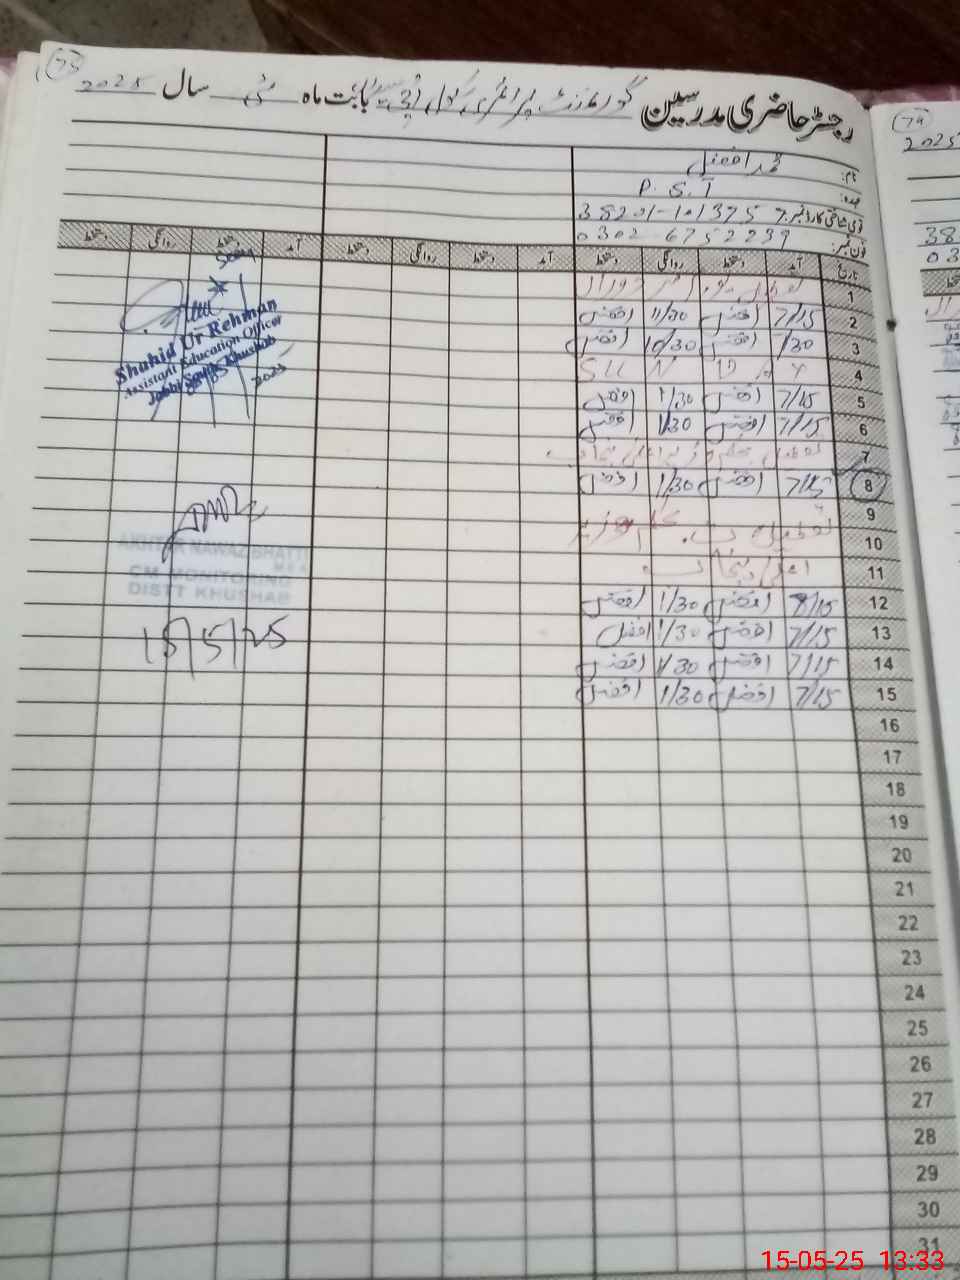 75
رجسٹر حاضری مدرسین گورنمنٹ پرائمری سکول بابت ماہ مئی سال 2025
نام: محمد افضل
عہدہ: P.S.T
قومی شناختی کارڈ نمبر: 38201-1013757
فون نمبر: 0302-6752239
تاریخ آمد دستخط روانگی دستخط آمد دستخط روانگی دستخط آمد دستخط روانگی دستخط
1 تعطیل
2 7/15 افضل 11/30 افضل
3 7/30 10/30 افضل
4 SUNDAY
5 7/15 افضل 1/30 افضل
6 7/15 افضل 1/30 افضل
7 تعطیل
8 7/15 افضل 1/30 افضل
9 تعطیل
10
11
12 8/15 افضل 1/30 افضل
13 7/15 افضل 1/30 افضل
14 7/15 افضل 1/30 افضل
15 7/15 افضل 1/30 افضل
16
17
18
19
20
21
22
23
24
25
26
27
28
29
30
31
Shahid Ur Rehman
Assistant Education Officer
Jabbi South Khushab
2025
AKHTAR NAWAZ BHATTI
M E A
CM MONITORING
DISTT KHUSHAB
15/5/25
74
2025
38
03
15-05-25 13:33